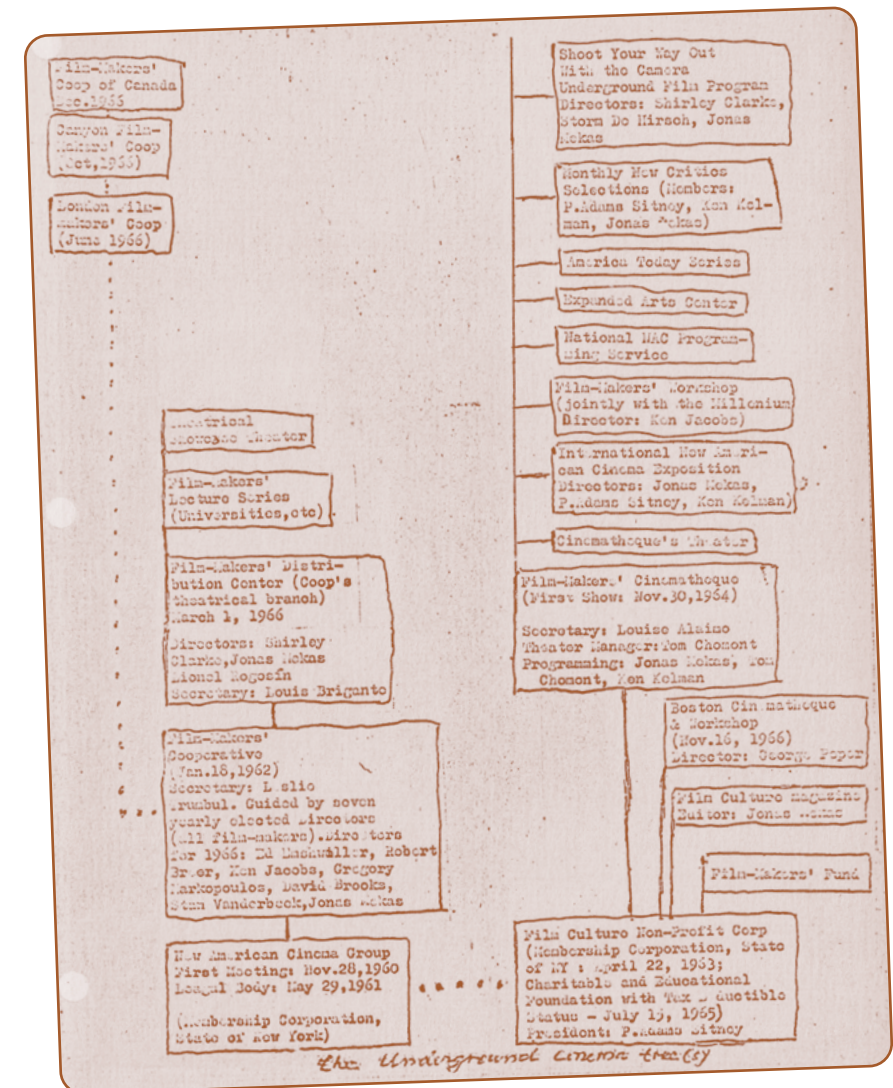 Film-Makers'
Coop of Canada
Dec.1966
Canyon Film-
Makers' Coop
(Oct,1966)
London Film-
makers' Coop
(June 1966)
Theatrical
Showcase Theater
Film-Makers'
Lecture Series
(Universities,etc)
Film-Makers' Distri-
bution Center (Coop's
theatrical branch)
March 1, 1966
Directors: Shirley
Clarke,Jonas Mekas
Lionel Rogosin
Secretary: Louis Briganto
Film-Makers'
Cooperative
(Jan.18,1962)
Secretary: Leslie
Trumbul. Guided by seven
yearly elected Directors
(all film-makers).Directors
for 1966: Ed Emshwiller, Robert
Breer, Ken Jacobs, Gregory
Markopoulos, David Brooks,
Stan Vanderbeek,Jonas Mekas
New American Cinema Group
First Meeting: Nov.28,1960
Leagal Body: May 29,1961
(Membership Corporation,
State of New York)
Shoot Your Way Out
With the Camera
Underground Film Program
Directors: Shirley Clarke,
Storm De Hirsch, Jonas
Mekas
Monthly New Critics
Selections (Members:
P.Adams Sitney, Ken Kel-
man, Jonas Mekas)
America Today Series
Expanded Arts Center
National NAC Program-
ming Service
Film-Makers' Workshop
(jointly with the Millenium
Director: Ken Jacobs)
International New Ameri-
can Cinema Exposition
Directors: Jonas Mekas,
P.Adams Sitney, Ken Kelman)
Cinematheque's Theater
Film-Makers' Cinematheque
(First Show: Nov.30,1964)
Secretary: Louise Alaimo
Theater Manager:Tom Chomont
Programming: Jonas Mekas, Tom
Chomont, Ken Kelman
Boston Cinematheque
& Workshop
(Nov.16, 1966)
Director: George Peper
Film Culture magazine
Editor: Jonas Mekas
Film-Makers' Fund
Film Culture Non-Profit Corp
(Membership Corporation, State
of NY : April 22, 1963;
Charitable and Educational
Foundation with Tax Deductible
Status - July 19, 1965)
President: P.Adams Sitney
the Underground cinema tree(s)